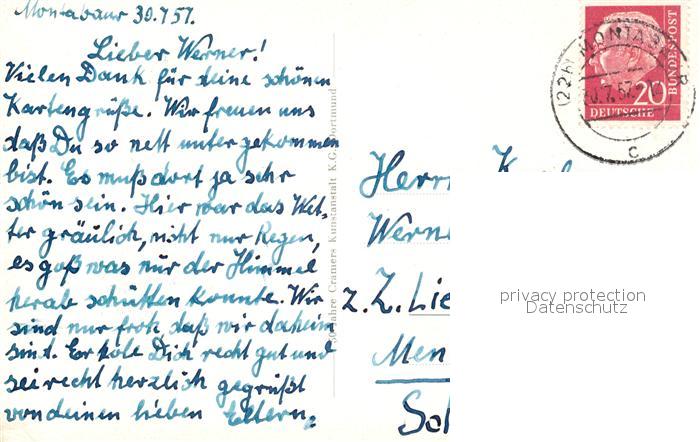 Montabaur 30.7.57.
Lieber Werner!
Vielen Dank für deine schönen
Kartengrüße. Wir freuen uns
daß Du so nett untergekommen
bist. Es muß dort ja sehr
schön sein. Hier war das Wet-
ter gräulich, nicht nur Regen,
es goß was nur der Himmel
herab schütten konnte. Wir
sind nur froh daß wir daheim
sind. Erhole Dich recht gut und
sei recht herzlich gegrüßt
von deinen lieben Eltern.
Jahre Cramers Kunstanstalt K.G. Dortmund
DEUTSCHE
BUNDESPOST
20
(22b) MONTABAUR
30.7.57
c
Herrn
Wern
z. Z. Lie
Men
privacy protection
Datenschutz